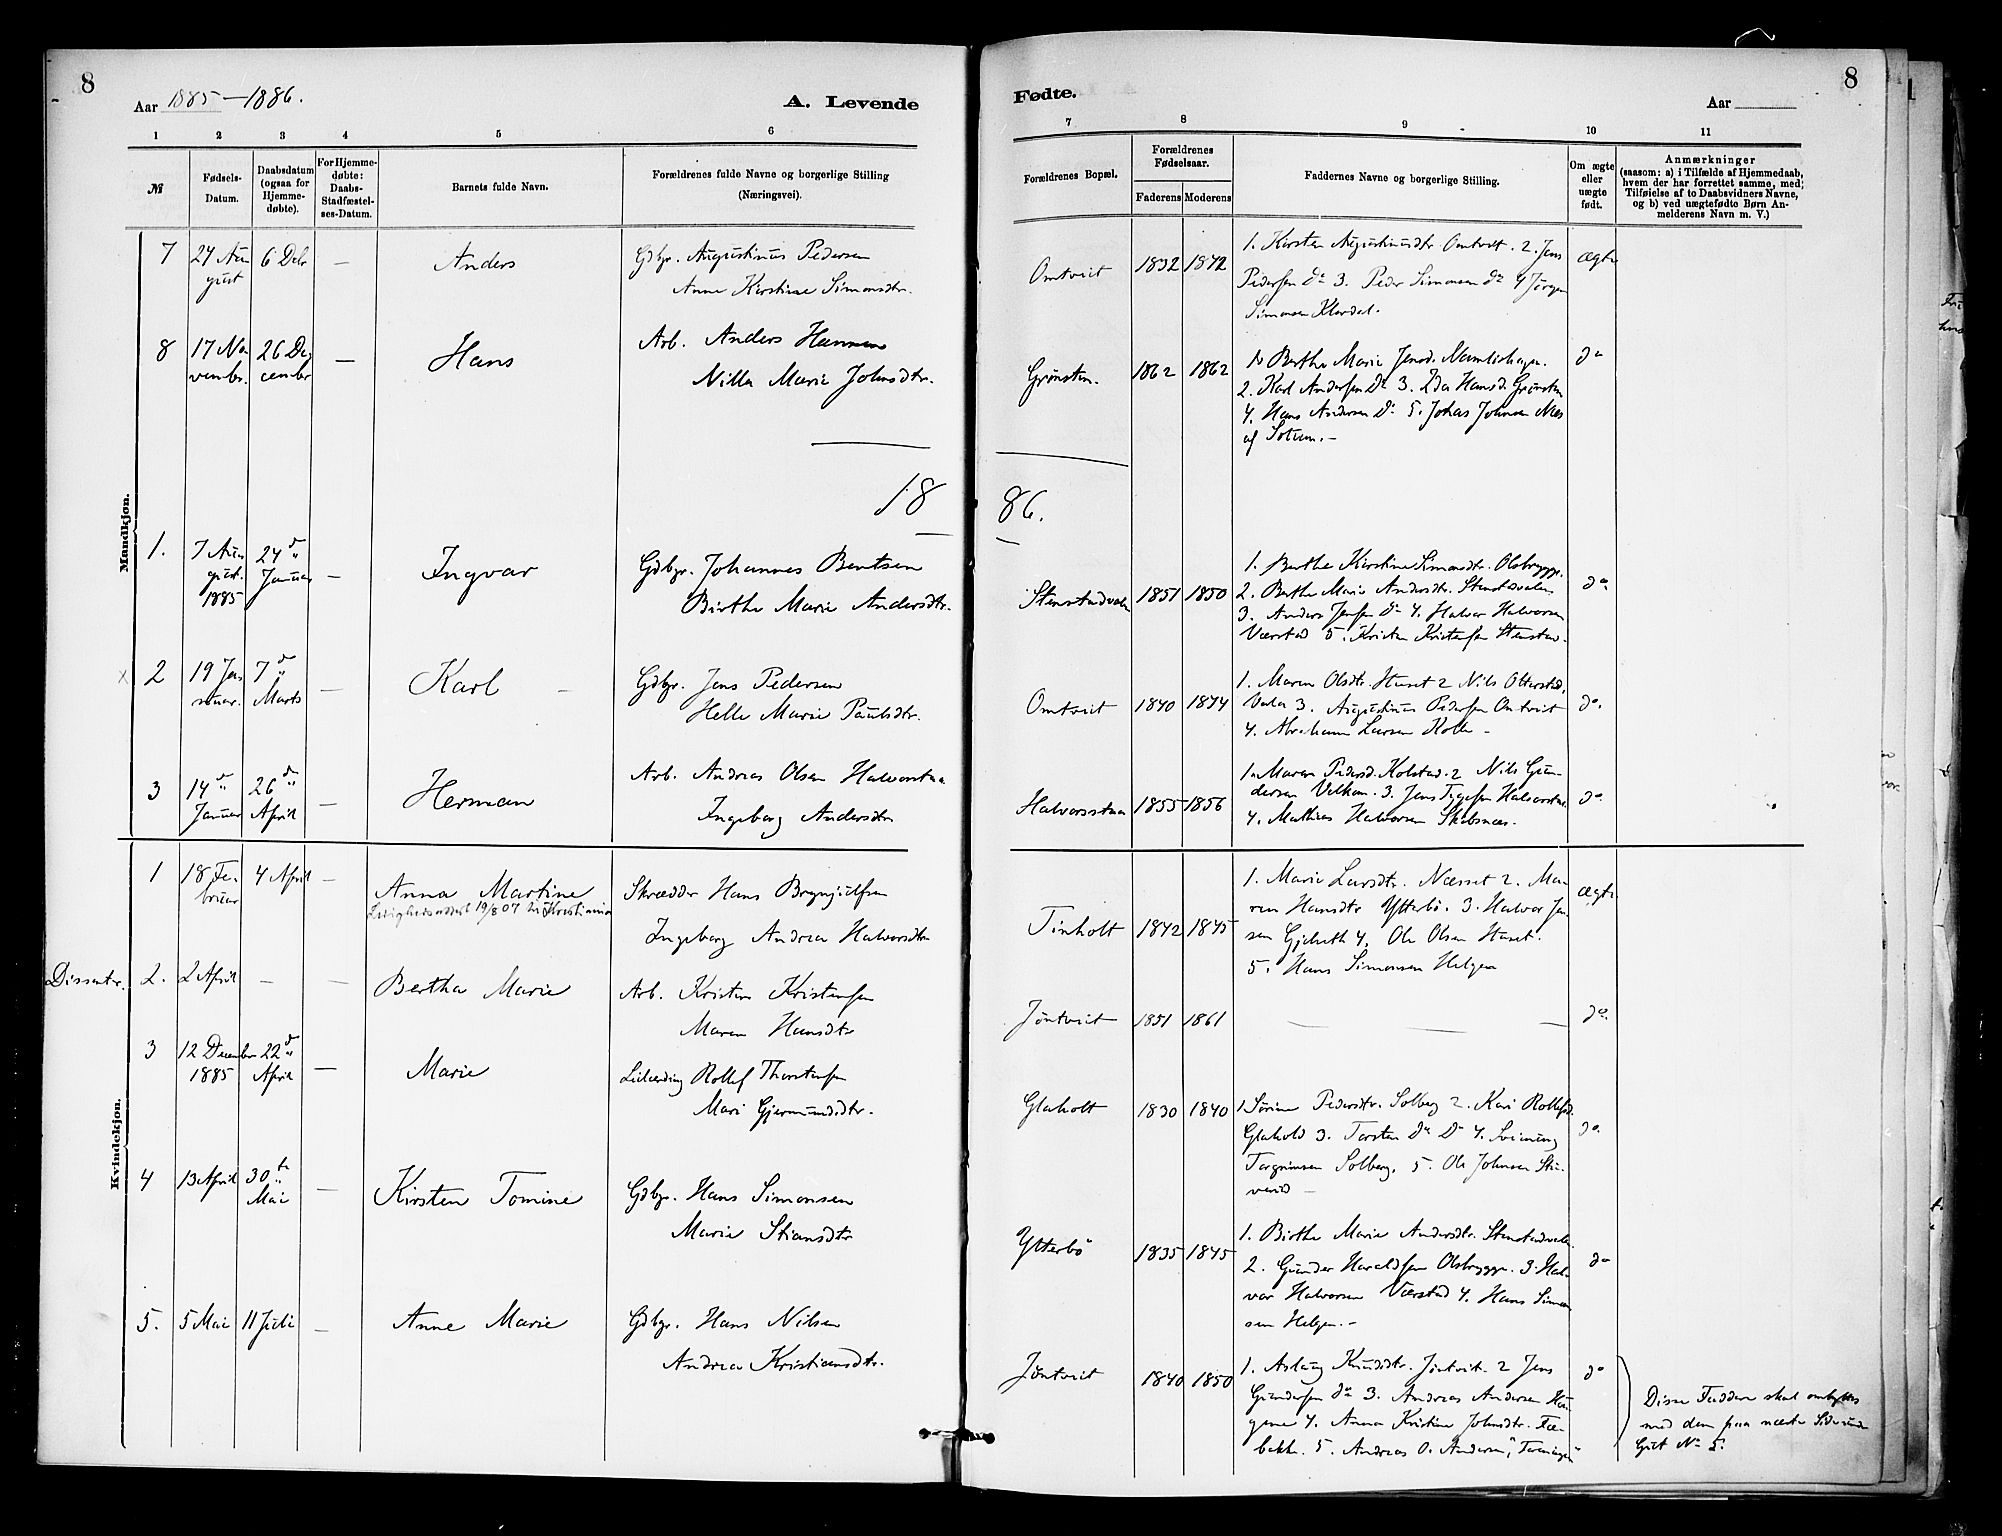 8
Aar 1885–1886.
A. Levende
1 2 3 4 5 6
№
Fødsels-Datum.
Daabsdatum (ogsaa for Hjemme-døbte).
For Hjemme-døbte: Daabs-Stadfæstel-ses-Datum.
Barnets fulde Navn.
Forældrenes fulde Navne og borgerlige Stilling
(Næringsvei).
Mandkjøn.
7 24 Au 6 Debr — Anders Gdbr. Augustinus Pedersen
gust Anne Kirstine Simonsdtr.
8 17 No 26 De — Hans Arb. Anders Hansen
vember cember Nilla Marie Johnsdtr.
18
1. 7 Au 24 d — Ingvar Gdbgr. Johannes Bentsen
gust. Januar
1885 Birthe Marie Andersdtr.
2 19 Ja 7 d — Karl — Gdbgr. Jens Pedersen
nuar. Marts Helle Marie Paulsdtr.
3 14 d 26 d — Herman Arb. Andreas Olsen Halvorsstua
Januar April Ingeborg Andersdtr
Kvindekjøn.
1 18 Fe- 4 April — Anna Martine Skrædder Hans Brynjulfsen
bruar 19/8 07 Kristiania
Ingeborg Andrea Halvorsdtr
Dissentr. 2. 2 April — — Bertha Marie Arb. Kristen Kristensen
Maren Hansdtr
3 12 December 22 d — Marie Rollef Thorstensen
1885 April Mari Gjermundsdtr.
4 13 April 30 te — Kirsten Tomine Gdbgr. Hans Simonsen
Mai Marie Stiansdtr
5. 5 Mai 11 Juli — Anne Marie Gdbgr. Hans Nilsen
Andrea Kristiansdtr.
8
Fødte.
Aar
7 8 9 10 11
Forældrenes Bopæl.
Forældrenes Fødselsaar.
Faderens Moderens
Faddernes Navne og borgerlige Stilling.
Om ægte eller uægte født.
Anmærkninger
(saasom: a) i Tilfælde af Hjemmedaab,
hvem der har forrettet samme, med
Tilføielse af to Daabsvidners Navne,
og b) ved uægtefødte Børn An-
melderens Navn m. V.)
Omtveit 1832 1842 1. Kirsten Augustinusdtr. Omtvedt. 2. Jens ægte
Pedersen do 3. Peder Simonsen do 4 Jørgen
Simonsen
Grønsten. 1862 1862 1. Berthe Marie Jensd. do
2. Karl Andersen Do 3. Ida Hansd. Grønsten
4. Hans Andersen Do 5. Johas Johnsen Næs
af Solum.—
86.
Stenstadvalen 1851 1850 1. Berthe Kirstine Simonsdtr. Olsbrygge. do
2. Berthe Marie Andersdtr. Stenstadvalen
3. Anders Jensen do 4. Halvor Halvorsen
Værstad 5. Kristen Kristensen Stenstad.
Omtveit 1840 1844 1. Maren Olsdtr. Huset 2 Nils do.
3. Augustinus Pedersen Omtveit
4. Abraham Larsen Holte —
Halvorsstua 1855 1856 1. Maren Pedersd. Kolstad. 2 Nils Gun- do.
dersen 3. Jens Halvorstua
4. Mathias Halvorsen
Tinholt 1842 1845 1. Marie Larsdtr. Næsset 2. Ma- ægte.
ren Hansdtr Ytterbö. 3. Halvor Jen-
sen 4. Ole Olsen Huset.
5. Hans Simonsen Helgen
Jöntveit 1851 1861 — — — do.
Glaholt 1830 1840 1. Sørine Pedersdtr. Solberg 2. Kari Rollefsd. do.
Glahold 3. Torsten do Do 4. Sveinung
Torgrimsen Solberg, 5. Ole Johnsen
Ytterbö 1835 1845 1. Birthe Marie Andersdtr. Stenstadvalen do
2. Gunder Haraldsen Olsbrygge. 3. Hal-
vor Halvorsen Værstad 4. Hans Simon
sen Helgen.—
Jöntveit 1840 1850 1. Aslaug Knudsdtr. Jöntveit. 2 Jens do
Gundersen do 3. Andreas Andersen
4. Anna Kristine Johnsdtr.
5. Andreas O. Andersen,
Disse Faddere skal ombyttes
med dem paa næste Side under
No 5.